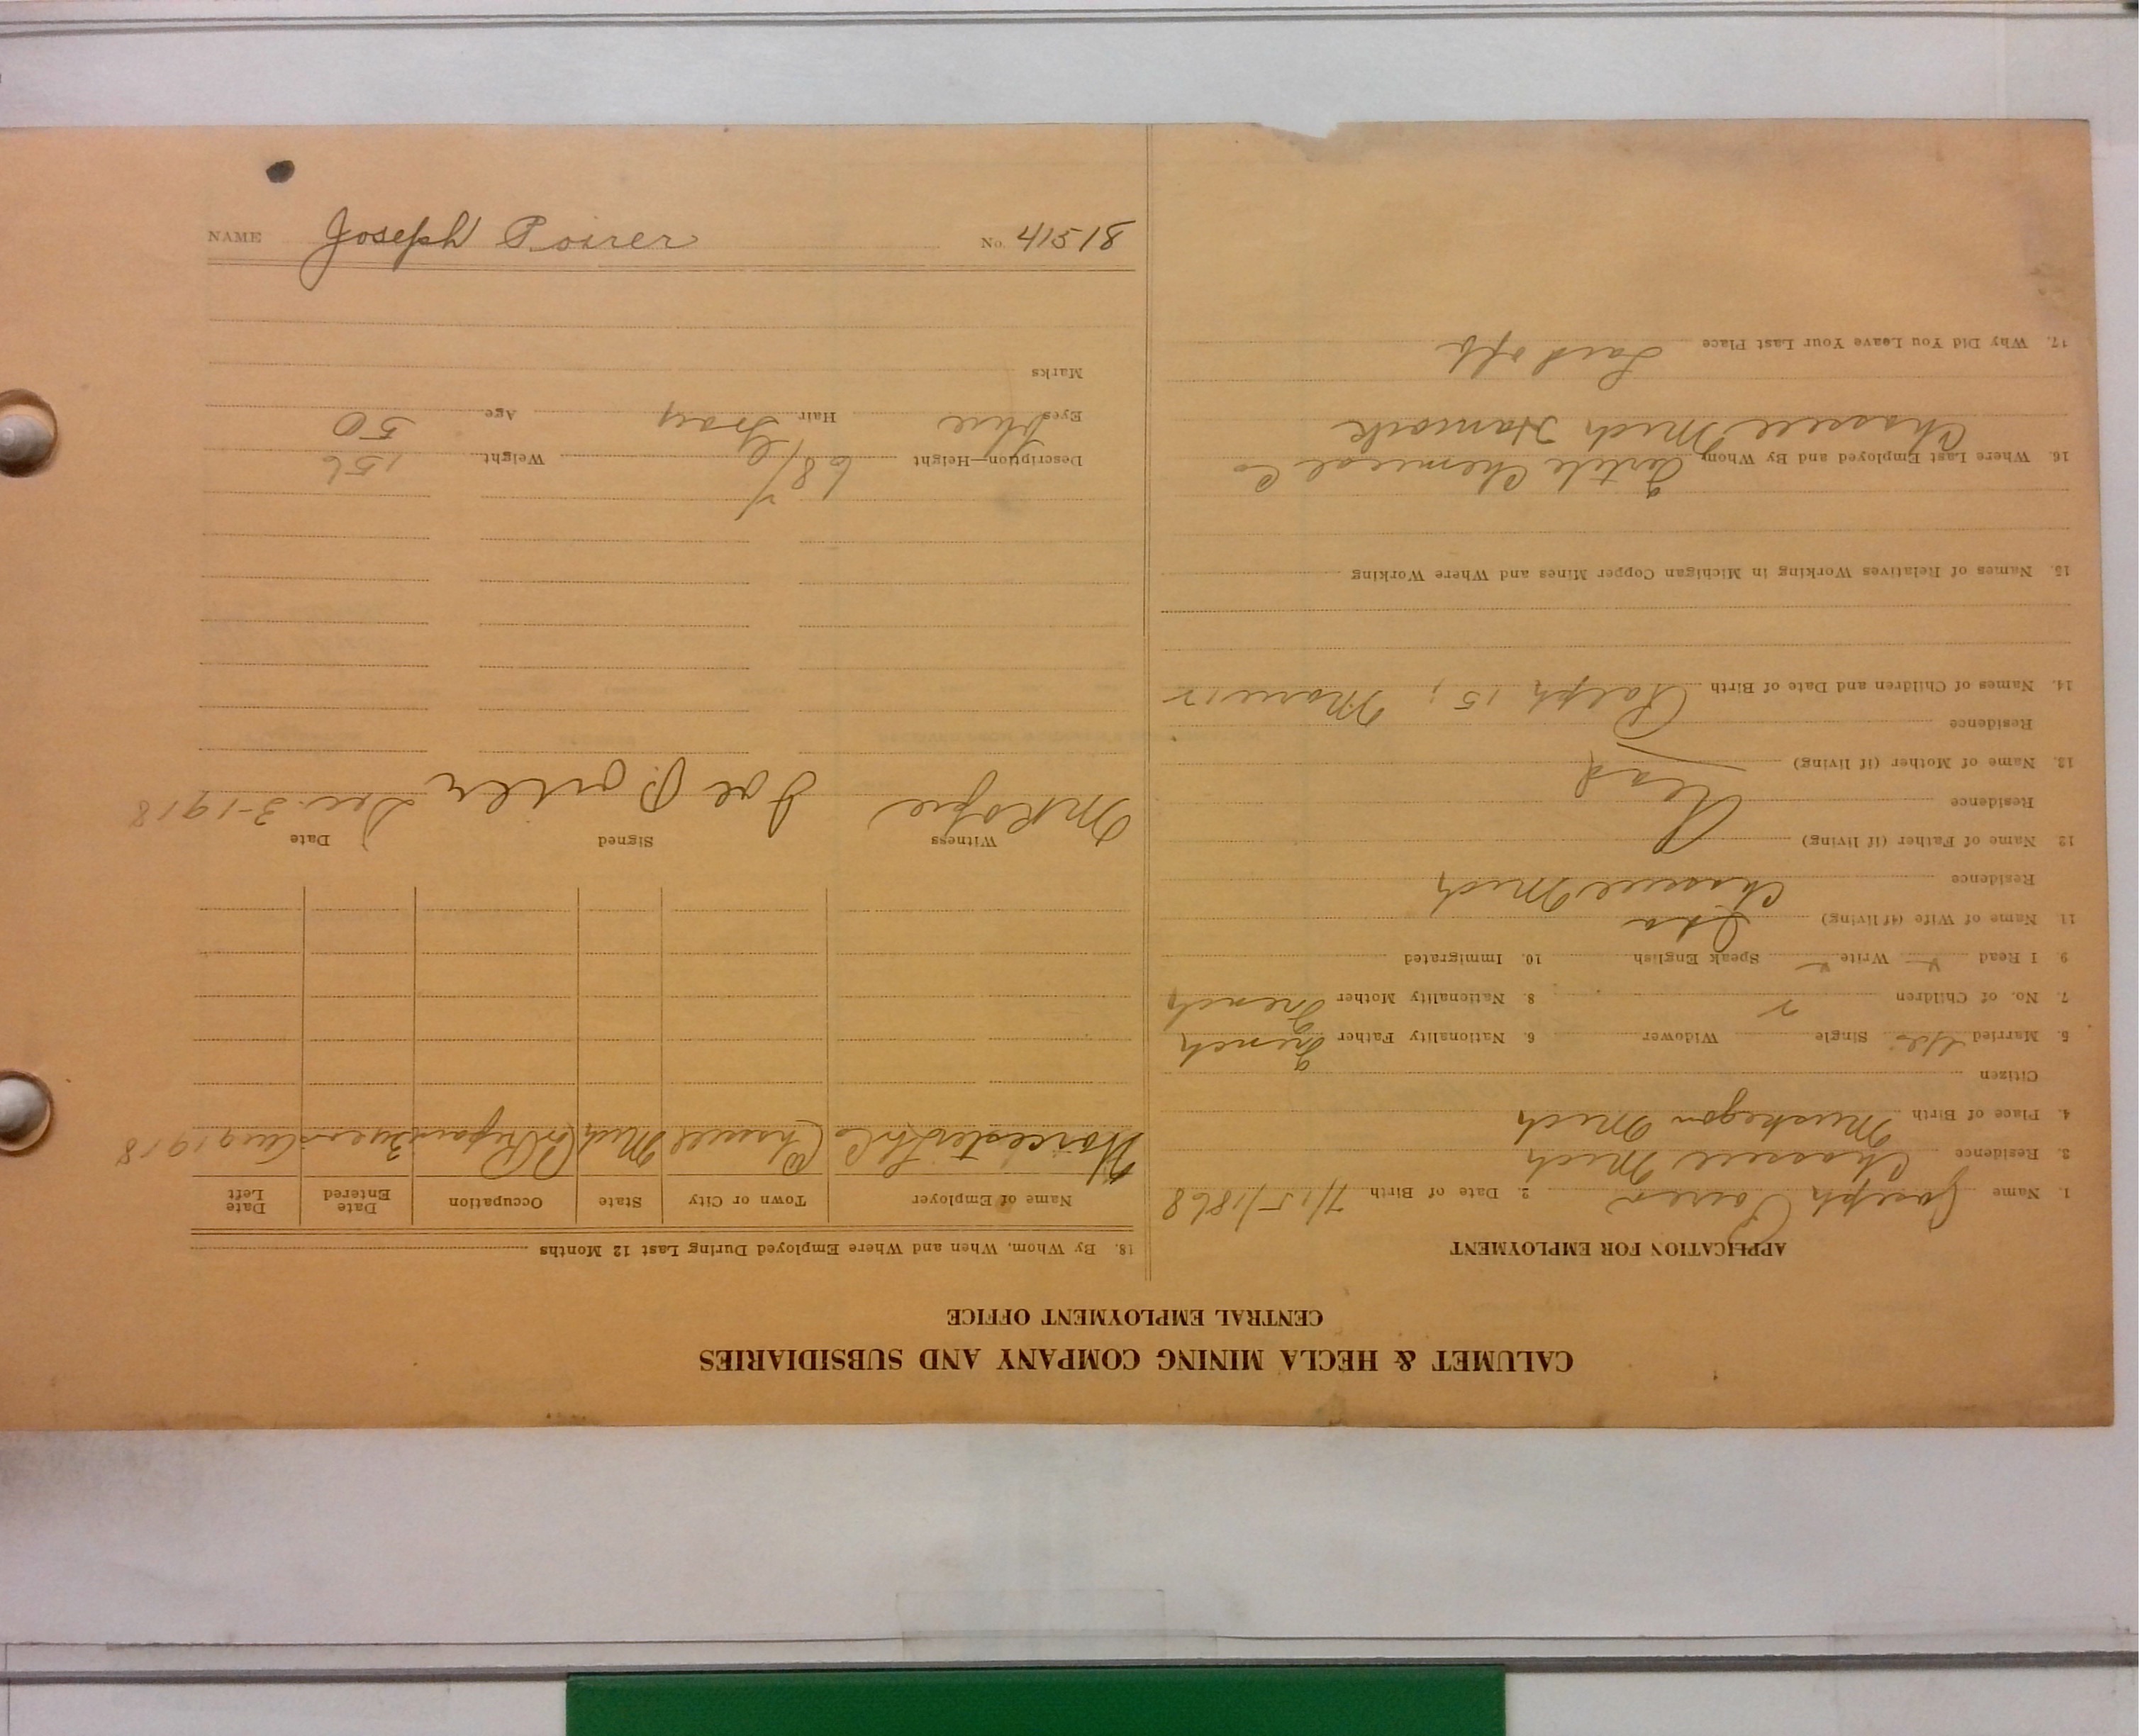 CALUMET & HECLA MINING COMPANY AND SUBSIDIARIES
CENTRAL EMPLOYMENT OFFICE
APPLICATION FOR EMPLOYMENT
1. Name Joseph Poirer 2. Date of Birth 7/15/1868
3. Residence Chassell Mich
4. Place of Birth Muskegon Mich
Citizen
5. Married Yes Single Widower 6. Nationality Father French
7. No. of Children 2 8. Nationality Mother French
9. I Read Write Speak English 10. Immigrated
11. Name of Wife (if living) Ida
Residence Chassell Mich
12. Name of Father (if living) Dead
Residence
13. Name of Mother (if living)
Residence
14. Names of Children and Date of Birth Ralph 15; Marie 12
15. Names of Relatives Working in Michigan Copper Mines and Where Working
16. Where Last Employed and By Whom Chemical Co
Chassell Mich
17. Why Did You Leave Your Last Place Laid off
18. By Whom, When and Where Employed During Last 12 Months
Name of Employer Town or City State Occupation Date Entered Date Left
Worcester Co Chassell Mich Car Repair 3 years Aug 1918
Witness Signed Date
Joe Poirier Dec-3-1918
Description—Height 68 1/2 Weight 156
Eyes Blue Hair Gray Age 50
Marks
NAME Joseph Poirer No. 41518